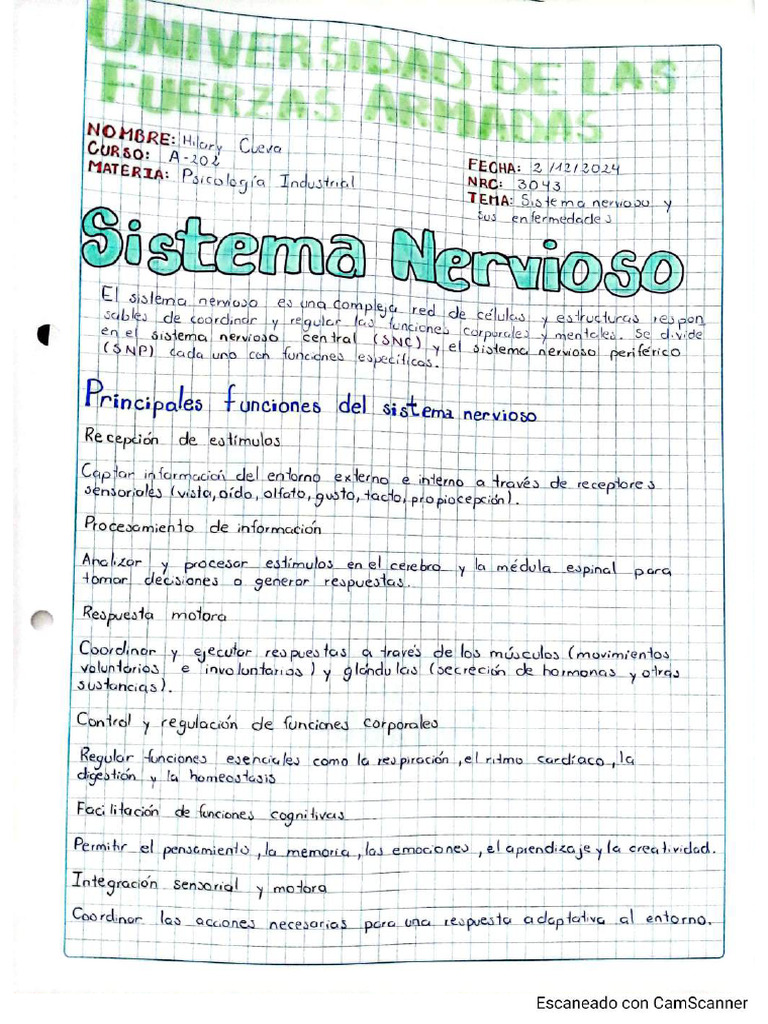 UNIVERSIDAD DE LAS
FUERZAS ARMADAS
NOMBRE: Hilary Cueva
CURSO: A-202
MATERIA: Psicología Industrial
FECHA: 2/12/2024
NRC: 3043
TEMA: Sistema nervioso y
sus enfermedades
Sistema Nervioso
El sistema nervioso es una compleja red de células y estructuras respon
sables de coordinar y regular las funciones corporales y mentales. Se divide
en el sistema nervioso central (SNC) y el sistema nervioso periférico
(SNP) cada uno con funciones específicas.
Principales funciones del sistema nervioso
Recepción de estímulos
Captar información del entorno externo e interno a través de receptores
sensoriales (vista, oído, olfato, gusto, tacto, propiocepción).
Procesamiento de información
Analizar y procesar estímulos en el cerebro y la médula espinal para
tomar decisiones o generar respuestas.
Respuesta motora
Coordinar y ejecutar respuestas a través de los músculos (movimientos
voluntarios e involuntarios) y glándulas (secreción de hormonas y otras
sustancias).
Control y regulación de funciones corporales
Regular funciones esenciales como la respiración, el ritmo cardíaco, la
digestión y la homeostasis
Facilitación de funciones cognitivas
Permitir el pensamiento, la memoria, las emociones, el aprendizaje y la creatividad.
Integración sensorial y motora
Coordinar las acciones necesarias para una respuesta adaptativa al entorno.
Escaneado con CamScanner